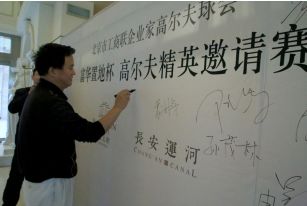 北京市工商联企业家高尔夫球会
富华置地杯 高尔夫精英邀请赛
長安運河
CHANG AN CANAL
孙茂林